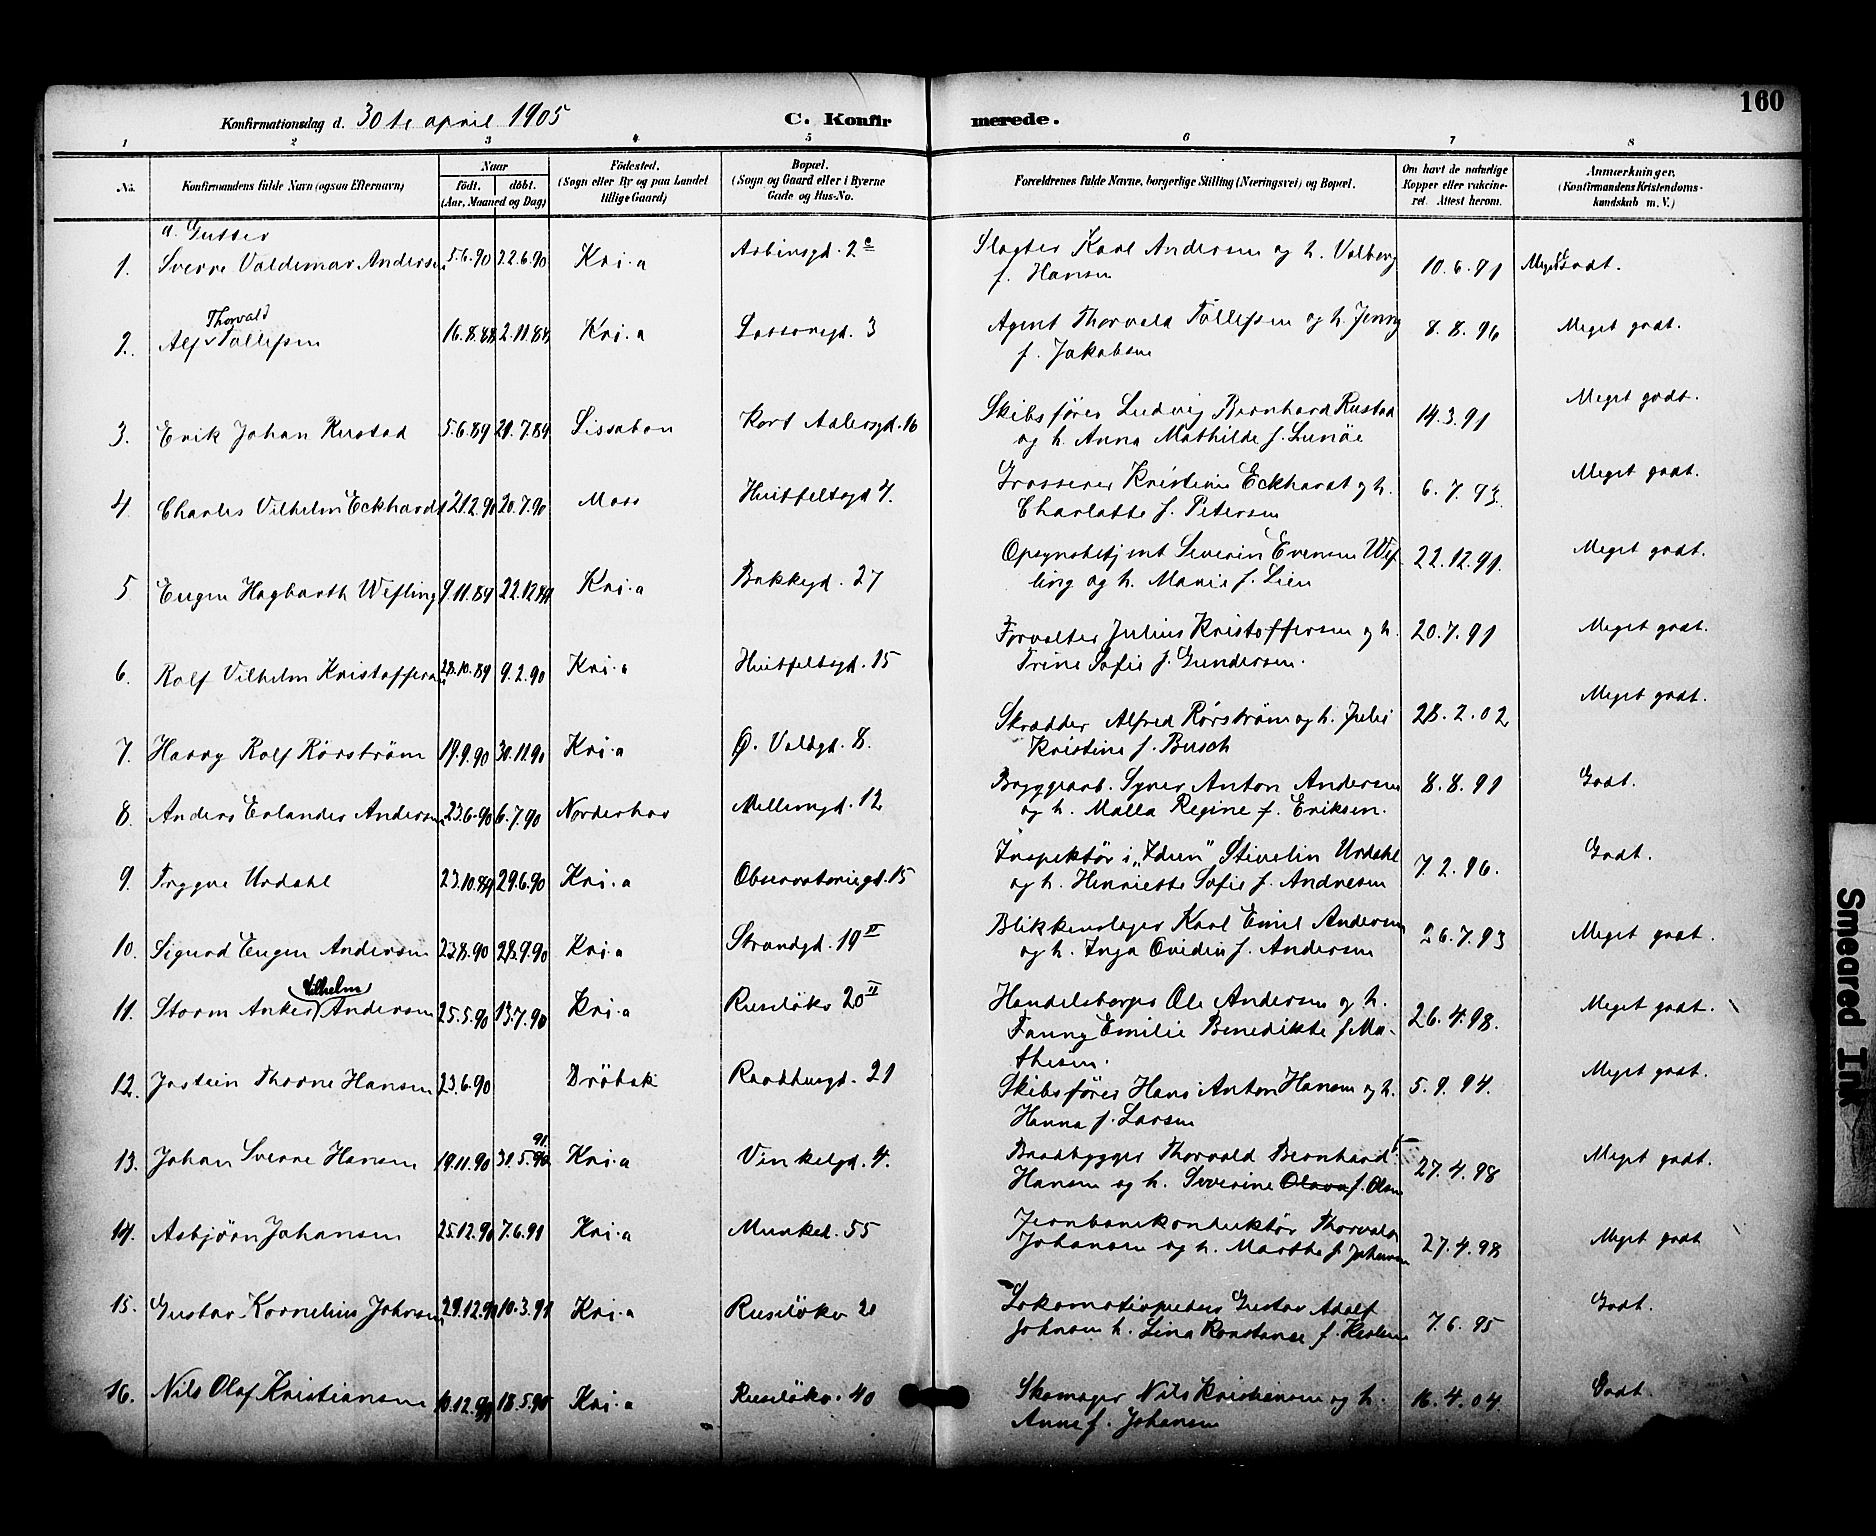 160
Konfirmationsdag d. 30 te april 1905 C. Konfirmerede.
1 2 3 4 5 6 7 8
No. Konfirmandens fulde Navn (ogsaa Efternavn) Naar födt. döbt. (Aar, Maaned og Dag) Födested. (Sogn eller By og paa Landet tillige Gaard) Bopæl. (Sogn og Gaard eller i Byerne Gade og Hus-No. Forældrenes fulde Navne, borgerlige Stilling (Næringsvei) og Bopæl. Om havt de naturlige Kopper eller vakcineret. Attest herom. Anmærkninger. (Konfirmandens Kristendomskundskab m. V.)
a. Gutter
1. Sverre Valdemar Andersen 5.6.90 22.6.90 Kri.a Asbinsgd. 2 c Slagter Karl Andersen og h. Valborg
f. Hansen 10.6.91 Meget Godt.
Thorvald
2. Alf Tollefsen 16.8.89 2.11.89 Kri.a Lassonsgd. 3 Agent Thorvald Tollefsen og h. Jenny
f. Jakobsen 8.8.96 Meget godt.
3. Erik Johan Rustad 5.6.89 21.7.89 Lissabon Kort Adlersgd. 16 Skibsfører Ludvig Bernhard Rustad
og h. Anna Mathilde f. Lunöe 14.3.91 Meget godt.
4. Charles Vilhelm Eckhardt 21.2.90 20.7.90 Moss Huitfeltsgd 4. Grosserer Kristian Eckhardt og h.
Charlotte f. Petersen 6.7.93. Meget godt.
5 Eugen Hagbarth Wefling 9.11.89 22.12.89 Kri.a Bakkegd. 27 Opsynsbetjent Severin Evensen Wef
ling og h. Marie f. Lien 22.12.91. Meget godt.
6. Rolf Vilhelm Kristoffersen 28.10.89 9.2.90 Kri.a Huitfeltsgd. 15 Forvalter Julius Kristoffersen og h.
Trine Sofie f. Gundersen. 20.7.91 Meget godt.
7. Harry Rolf Rörström 19.9.90 30.11.90 Kri.a Ø. Voldgd. 8. Skrædder Alfred Rörström og h. Julie
Kristine f. Busch 28.2.02 Meget godt.
8. Anders Erlander Andersen 23.6.90 6.7.90 Norderhov Mellemgd. 12 Bryggearb. Syver Anton Andersen
og h. Malla Regine f. Eriksen. 8.8.91 Godt.
9. Trygve Urdahl 23.10.89 29.6.90 Kri.a Observatoriegd. 15 Inspektör i "Idun" Stivelin Urdahl
og h. Henriette Sofie f. Andresen 7.2.96. Godt.
10. Sigurd Eugen Andersen 23.8.90 28.9.90 Kri.a Strandgd. 19 II Blikkenslager Karl Emil Andersen
og h. Inga Ovidia f. Andersen 26.7.93 Meget godt.
Vilhelm
11. Storm Anker Andersen 25.5.90 13.7.90 Kri.a Ruselökv 20 II Handelsborger Ole Andersen og h.
Fanny Emilie Benedikte f. Ma-
thesen. 26.4.98. Meget godt.
12. Jostein Thorne Hansen 23.6.90 Dröbak Raadhusgd. 21 Skibsförer Hans Anton Hansen og h.
Hanna f. Larsen 5.9.94. Meget godt.
91.
13. Johan Sverre Hansen 19.11.90 31.5.90 Kri.a Vinkelgd. 4. Baadbygger Thorvald Bernhard
Hansen og h. Severine Olava f. Olsen 27.4.98 Meget godt.
14. Asbjörn Johansen 25.12.90 7.6.91 Kri.a Munked. 55 Jernbanekonduktör Thorvald
Johansen og h. Marthe f. Johansen 27.4.98 Meget godt
15. Gustav Kornelius Johnsen 29.12.90 10.3.91 Kri.a Ruselökv 20 Lokomotivpudser Gustav Adolf
Johnsen h. Lina Konstanse f. 7.6.95 Godt.
16. Nils Olaf Kristiansen 10.12.89 18.5.90 Kri.a Ruselökv. 40 Skomager Nils Kristiansen og h.
Anne f. Johansen 16.4.04. Godt.
Smeared Ink